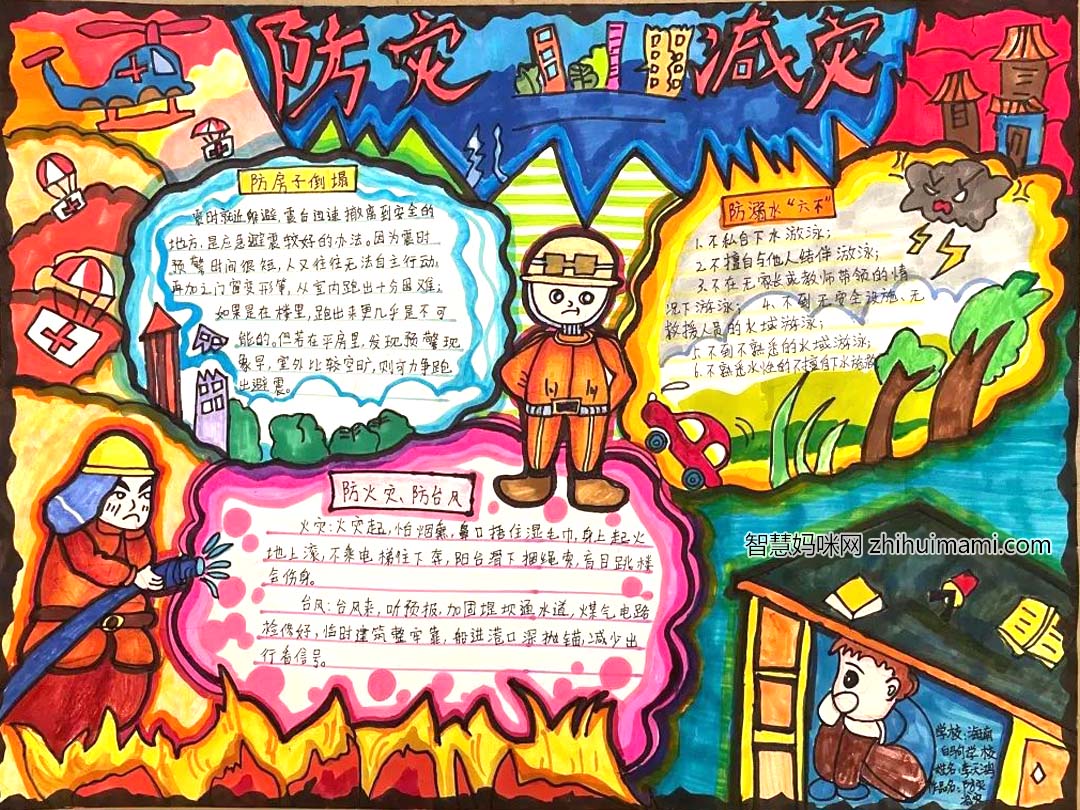 防灾 减灾
防房子倒塌
震时就近躲避,震后迅速撤离到安全的
地方,是应急避震较好的办法。因为震时
预警时间很短,人又往往无法自主行动,
再加之门窗变形等,从室内跑出十分困难;
如果是在楼里,跑出来更几乎是不可
能的。但若在平房里,发现预警现
象早,室外比较空旷,则可力争跑
出避震。
防溺水“六不”
1.不私自下水游泳;
2.不擅自与他人结伴游泳;
3.不在无家长或教师带领的情
况下游泳; 4.不到无安全设施、无
救援人员的水域游泳;
5.不到不熟悉的水域游泳;
6.不熟悉水性的不擅自下水施救
防火灾、防台风
火灾:火灾起,怕烟熏,鼻口捂住湿毛巾,身上起火
地上滚,不乘电梯往下奔,阳台滑下捆绳索,盲目跳楼
会伤身。
台风:台风来,听预报,加固堤坝通水道,煤气电路
检修好,临时建筑整牢靠,船进港口深抛锚,减少出
行看信号。
智慧妈咪网 zhihuimami.com
学校:海南
白驹学校
姓名:李天
作品名:防灾